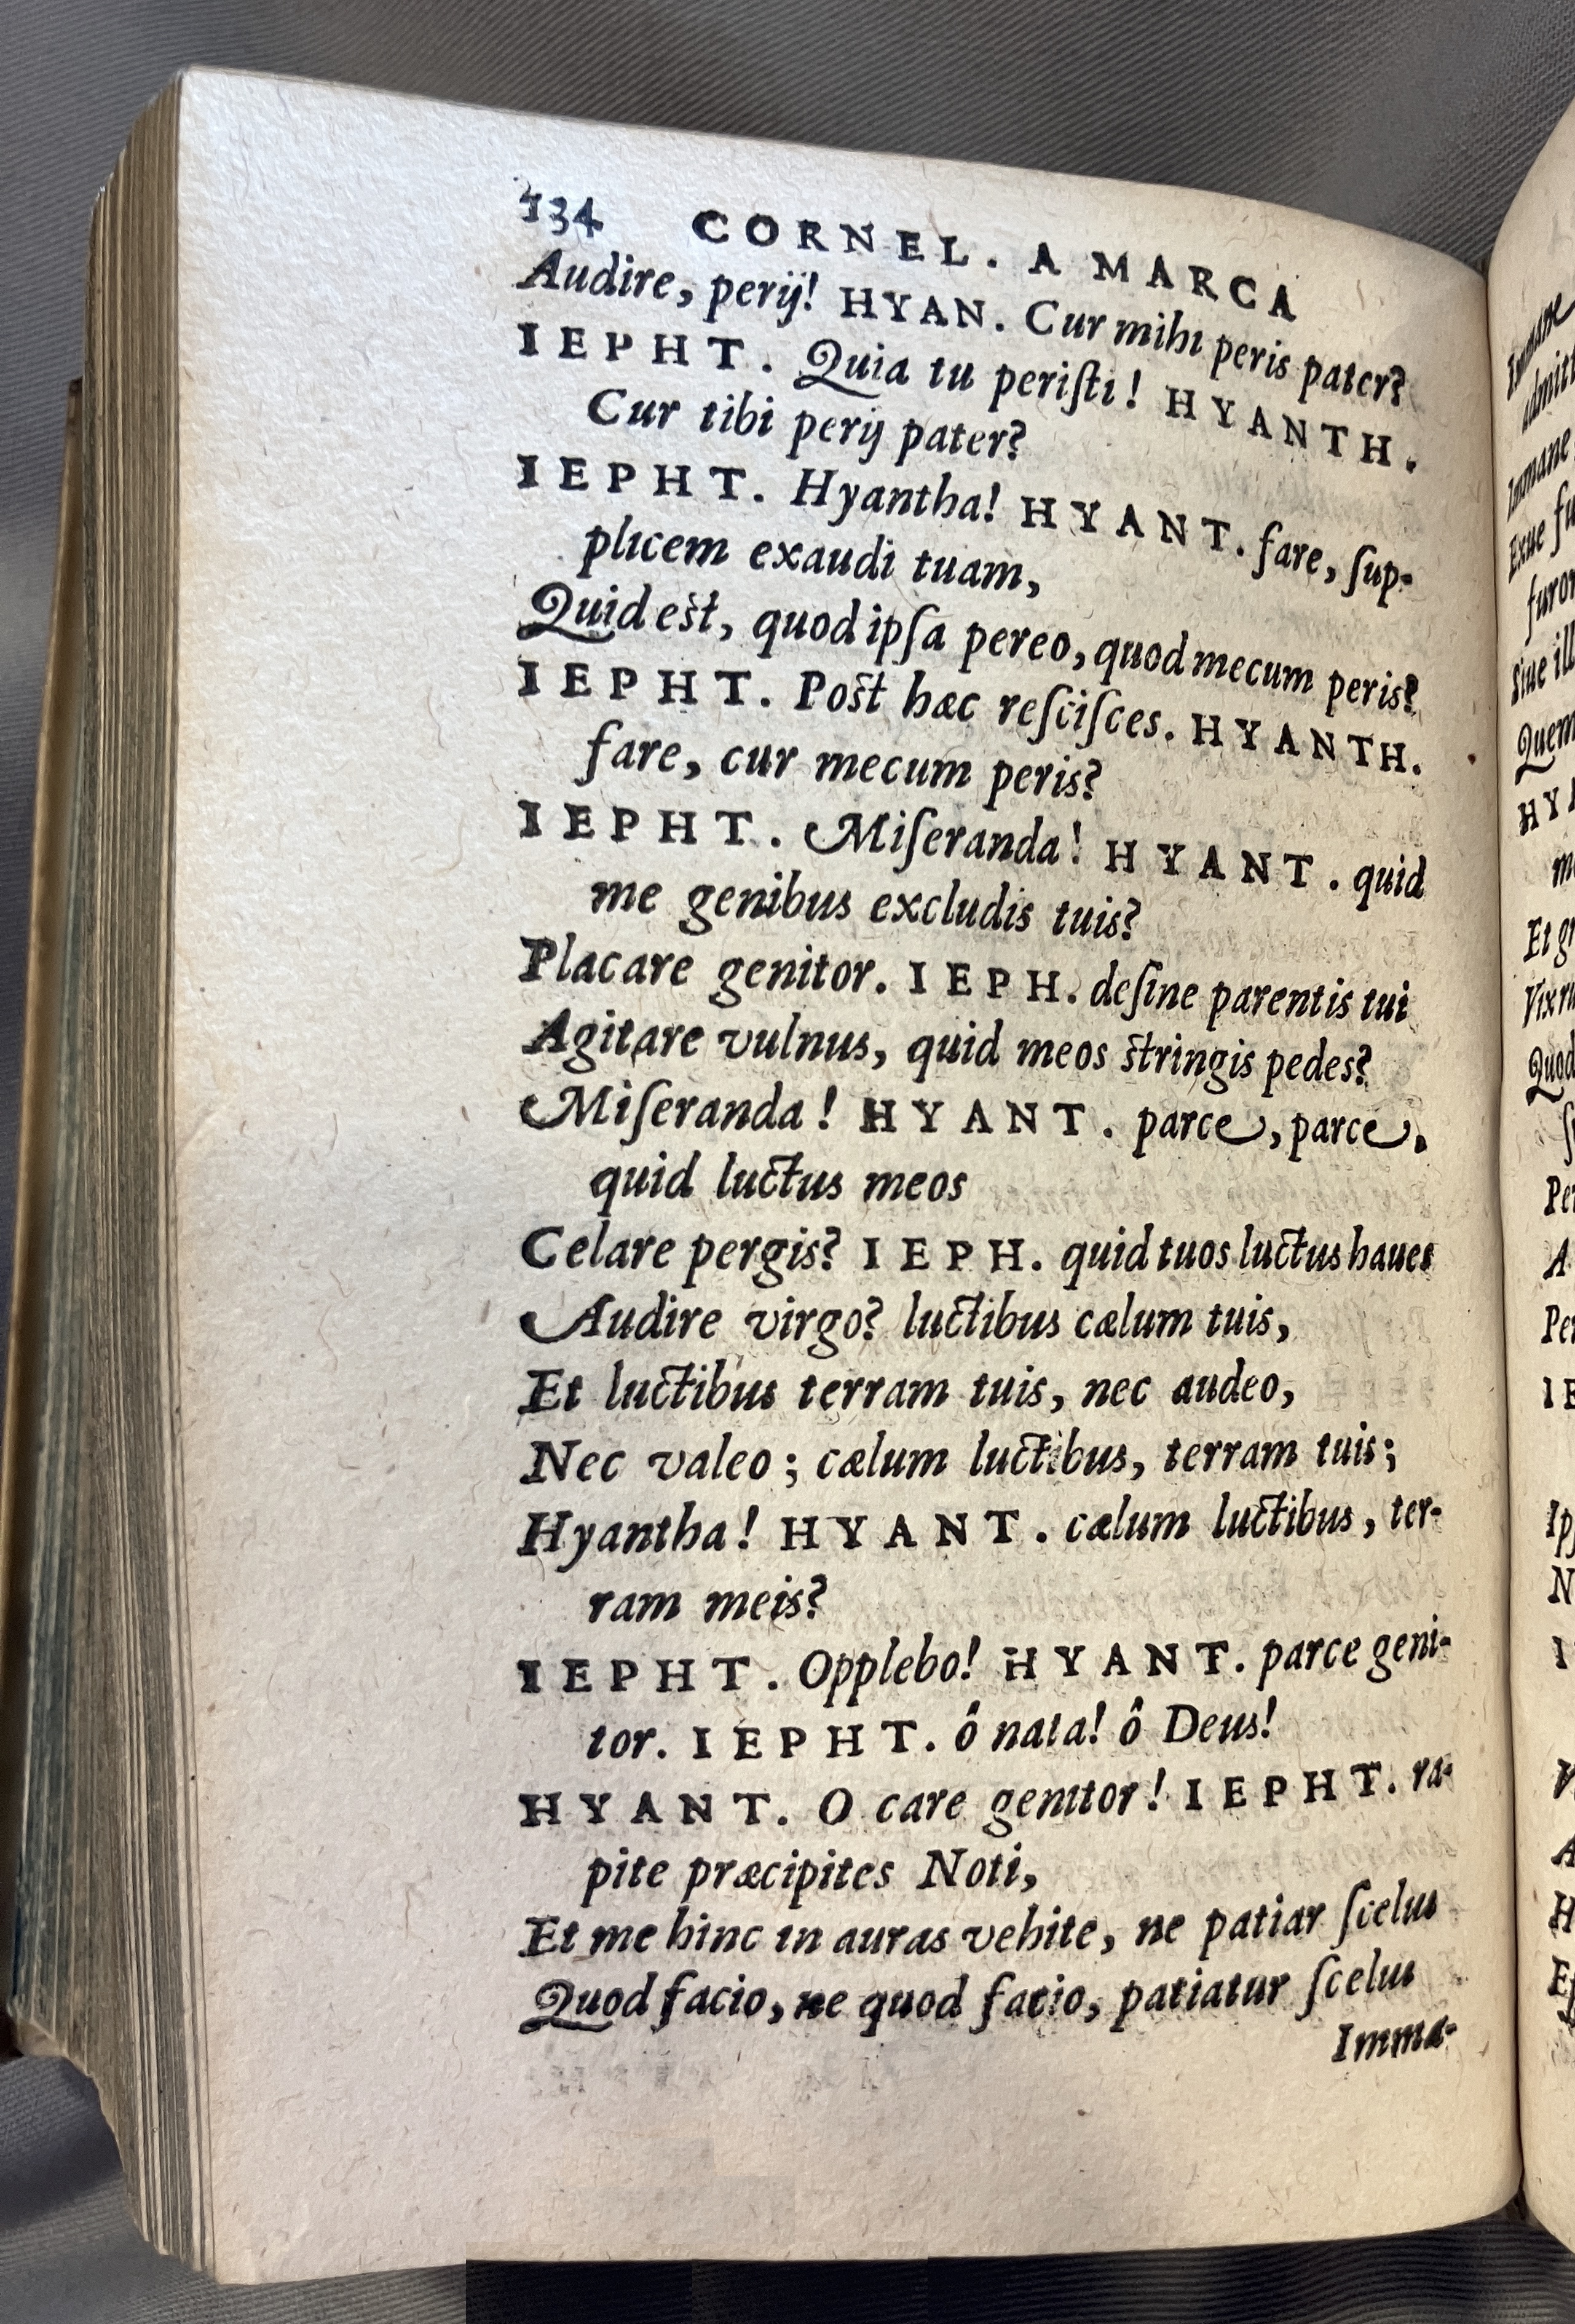 134 CORNEL. A MARCA
Audire, perij! HYAN. Cur mihi peris pater?
IEPHT. Quia tu periſti! HYANTH.
Cur tibi perij pater?
IEPHT. Hyantha! HYANT. fare, ſup-
plicem exaudi tuam,
Quid eſt, quod ipſa pereo, quod mecum peris?
IEPHT. Poſt hæc reſciſces. HYANTH.
fare, cur mecum peris?
IEPHT. Miſeranda! HYANT. quid
me genibus excludis tuis?
Placare genitor. IEPH. deſine parentis tui
Agitare vulnus, quid meos ſtringis pedes?
Miſeranda! HYANT. parce, parce,
quid luctus meos
Celare pergis? IEPH. quid tuos luctus haues
Audire virgo? luctibus cælum tuis,
Et luctibus terram tuis, nec audeo,
Nec valeo; cælum luctibus, terram tuis;
Hyantha! HYANT. cælum luctibus, ter-
ram meis?
IEPHT. Opplebo! HYANT. parce geni-
tor. IEPHT. ô nata! ô Deus!
HYANT. O care genitor! IEPHT. ra-
pite præcipites Noti,
Et me hinc in auras vehite, ne patiar ſcelus
Quod facio, ne quod facio, patiatur ſcelus
Imma-
Immane
Immane
Exue
Quem
Et
Quod